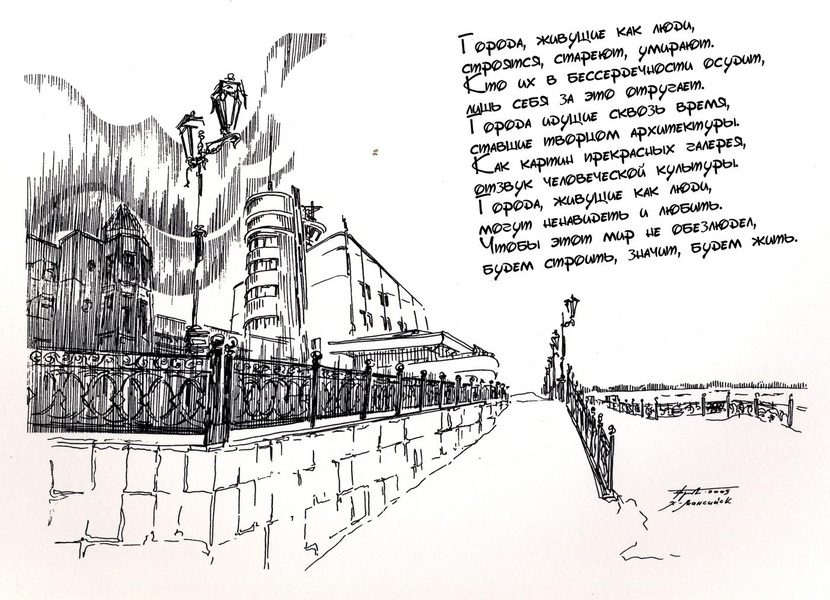 Города, живущие как люди,
строятся, стареют, умирают.
Кто их в бессердечности осудит,
лишь себя за это отругает.
Города идущие сквозь время,
ставшие творцом архитектуры.
Как картин прекрасных галерея,
отзвук человеческой культуры.
Города, живущие как люди,
могут ненавидеть и любить.
Чтобы этот мир не обезлюдел,
будем строить, значит, будем жить.
2009